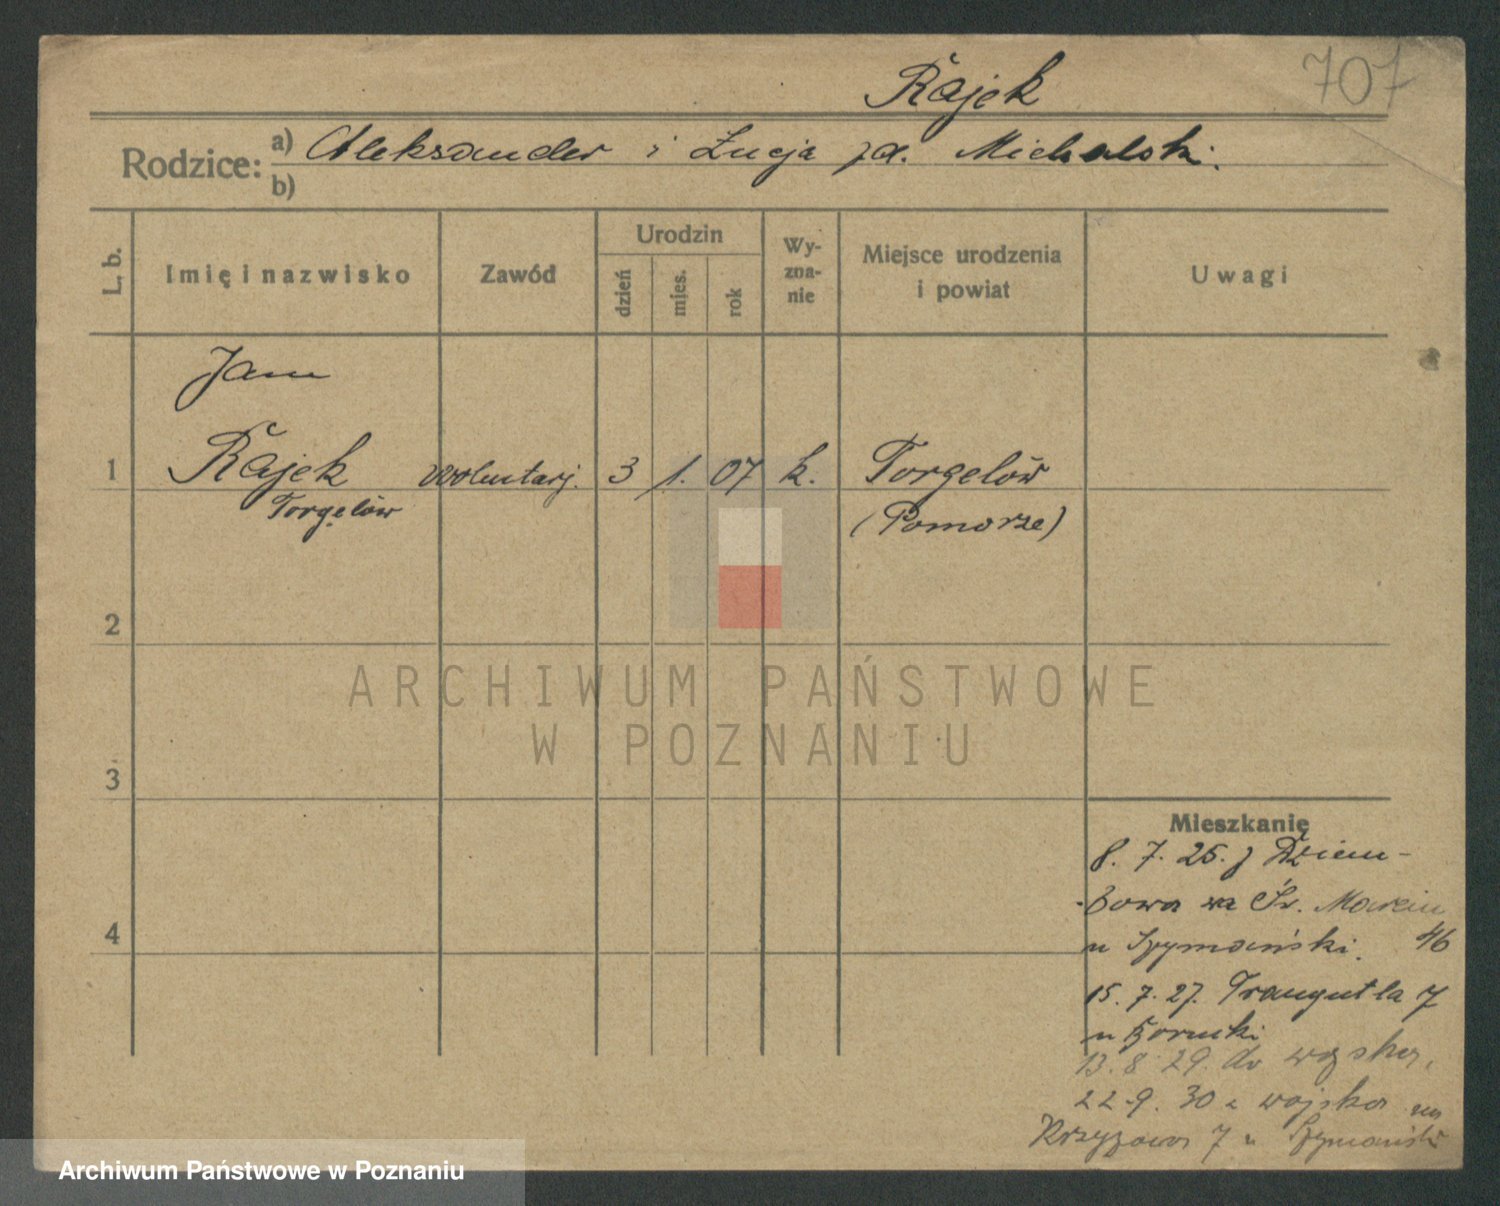 Rajek
707
Rodzice: a) Aleksander i Łucja zd. Michalski.
b)
L. b.
Imię i nazwisko
Zawód
Urodzin
dzień
mies.
rok
Wy-
zna-
nie
Miejsce urodzenia
i powiat
Uwagi
Jan
1 Rajek woluntarj. 3 1. 07 k. Torgelów
Torgelów (Pomorze)
2
3
4
Mieszkanie
8. 7. 25. z Dziem-
bowa na Św. Marcin
u Szymański. 46
15. 7. 27. Traugutta 7
u
13. 8. 29. do wojska.
22. 9. 30 z wojska na
Krzyżowa 7 u Szymański
ARCHIWUM PAŃSTWOWE
W POZNANIU
Archiwum Państwowe w Poznaniu